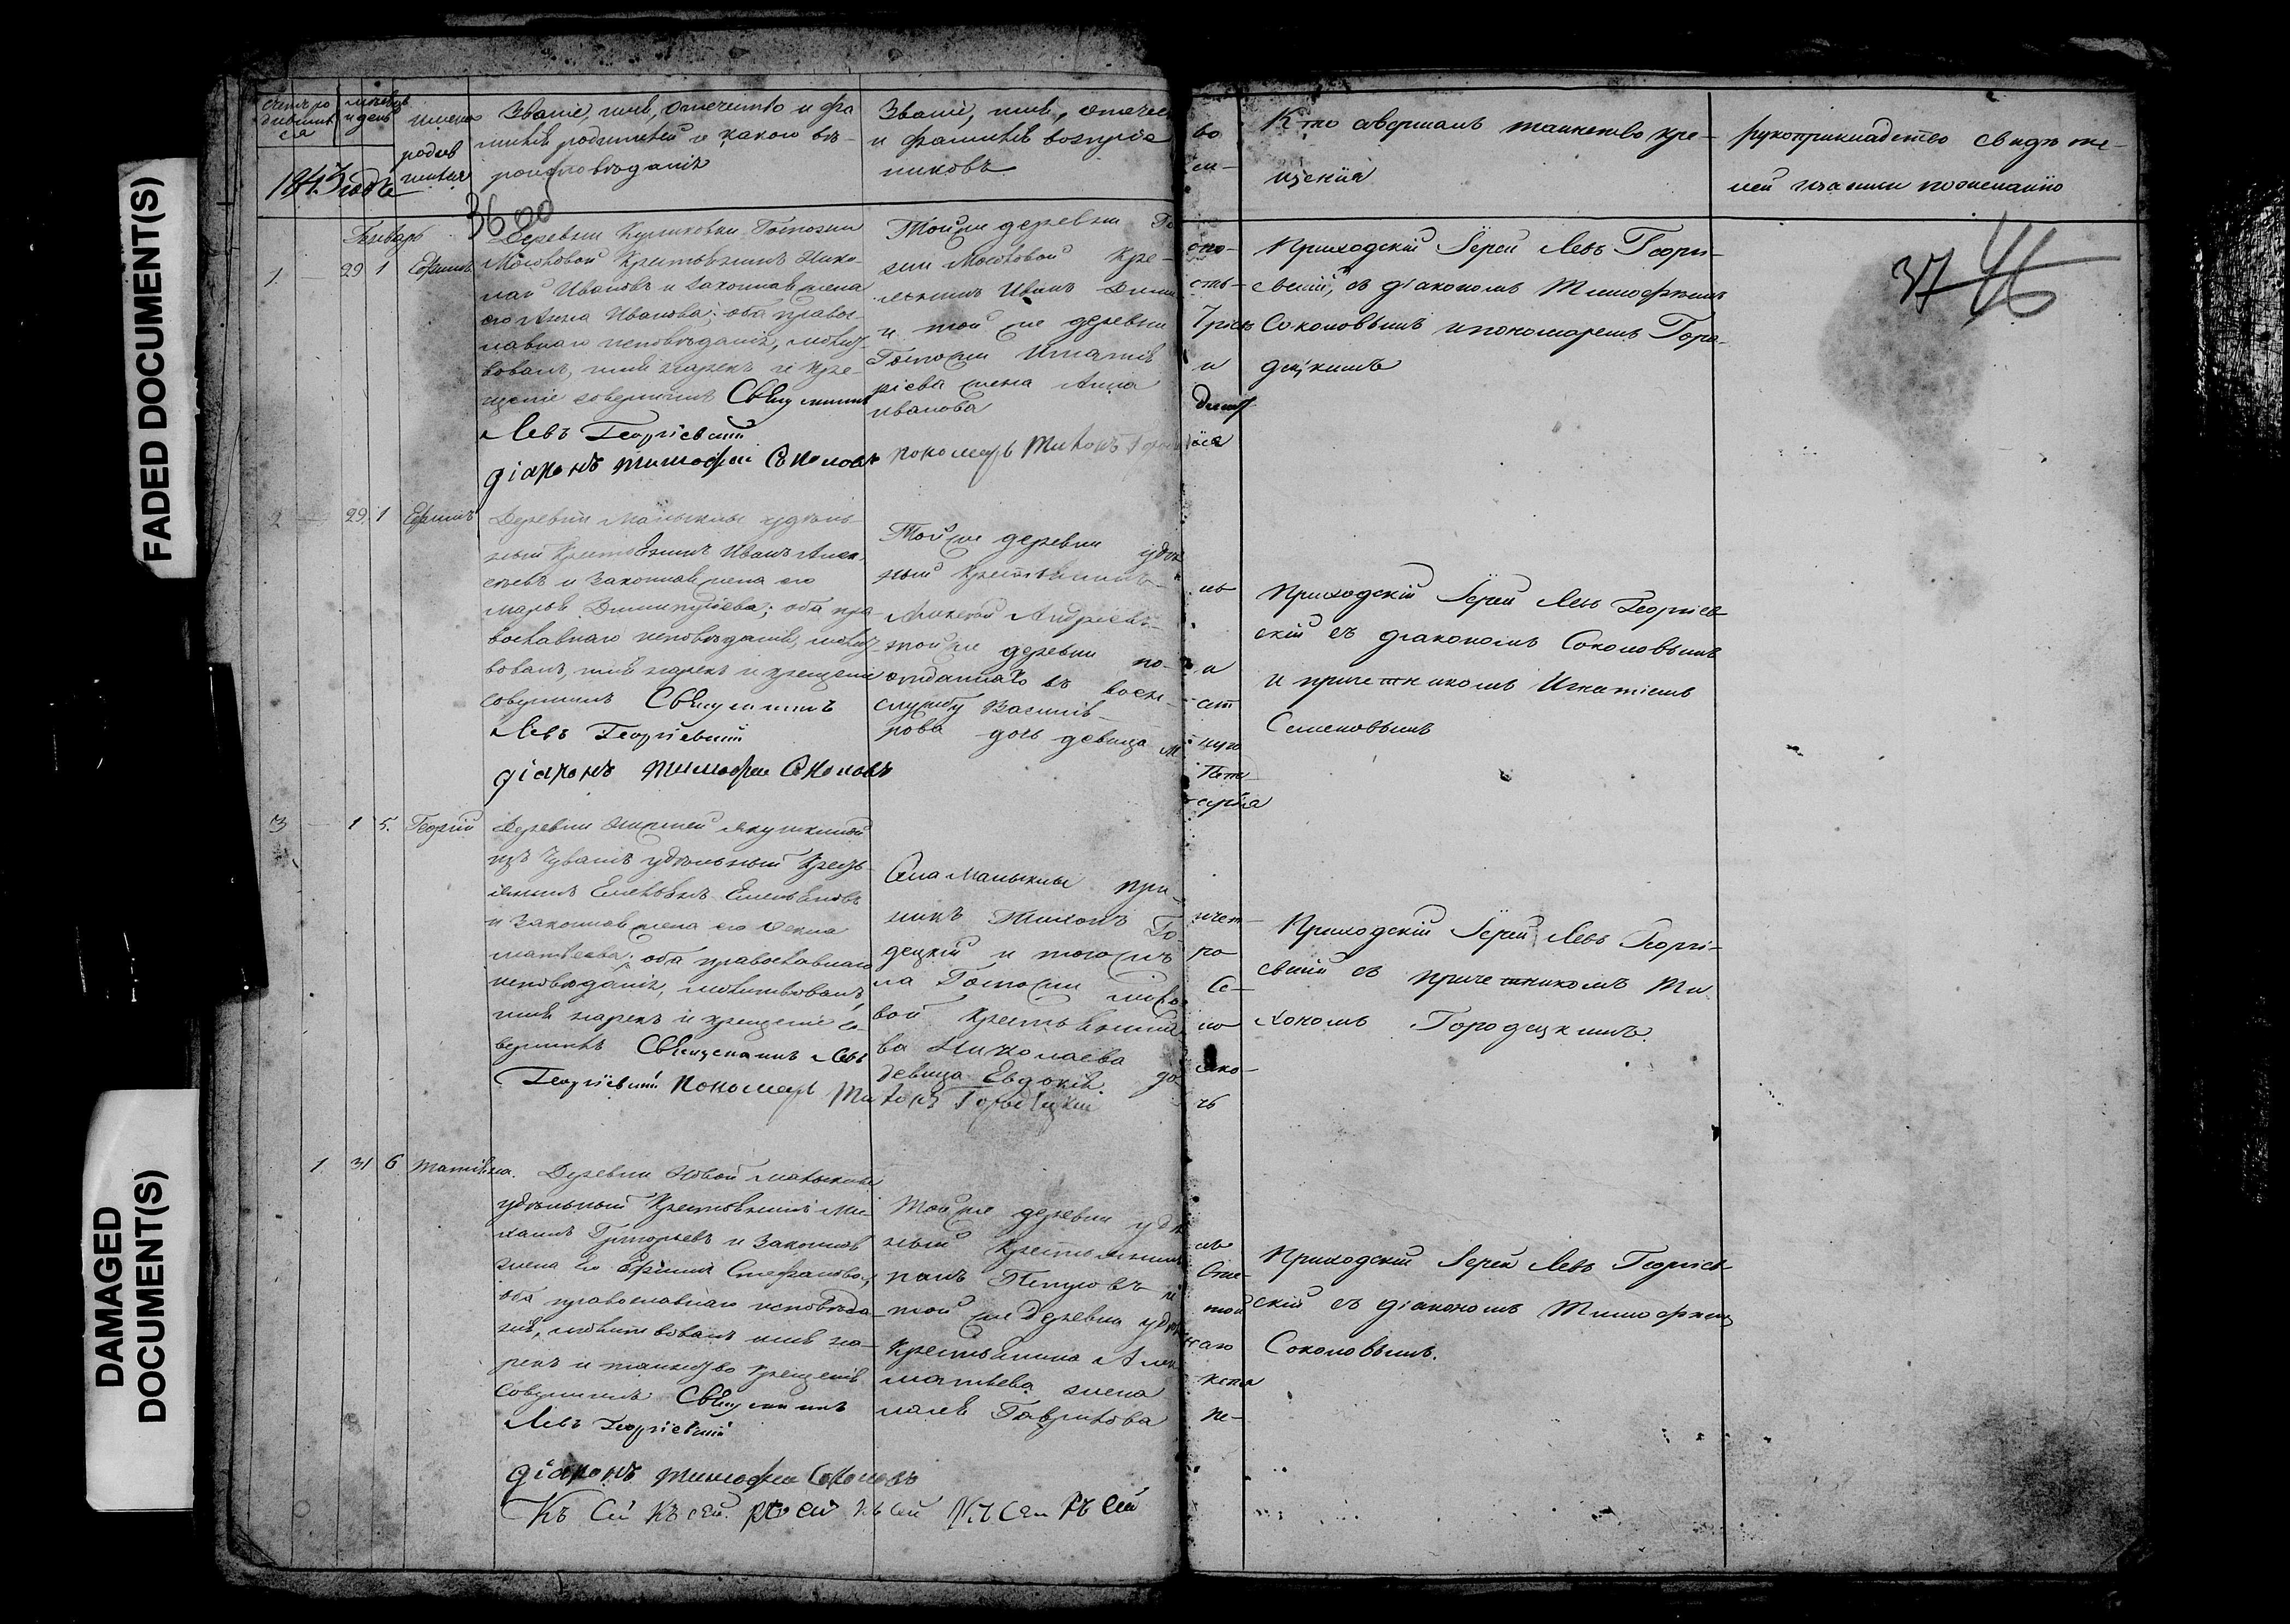 FADED DOCUMENT(S)
DAMAGED
DOCUMENT(S)
Счетъ ро
дивших
ся
месяцъ
и день
имена
родив
Званіе, имя, отечество и фа
милія родителей и какого вѣ-
роисповѣданія
Званіе, имя, отечество
и фамилія воспріем-
никовъ
Кто совершалъ таинство кре-
щенія
рукоприкладство свидѣте-
лей записи по желанію
1843 года
3600
37 46
Январь
1. 29 1 Ефимъ
Деревни Куликовки Госпожи
крестьянинъ Нико-
лай Ивановъ и законная жена
его Анна Иванова; оба правос-
лавнаго исповѣданія, молитв-
вовалъ, имя нарекъ и кре-
щеніе совершилъ Священникъ
Левъ Георгіевскій
діаконъ Тимофей Соколовъ
Той же деревни Госпо-
жи кресть-
янинъ Иванъ
и той же деревни
Госпожи
жена Анна
Иванова
пономарь Тихонъ
Приходскій Іерей Левъ Георгі-
евскій, съ діакономъ Тимофѣемъ
Соколовымъ и пономаремъ Горо-
децкимъ
2 29 1 Ефимъ
Деревни Малыклы удѣль-
ный крестьянинъ Иванъ Алек-
сѣевъ и законная жена его
Марья Димитріева; оба пра-
вославнаго исповѣданія, молитв-
вовалъ, имя нарекъ и крещеніе
совершилъ Священникъ
Левъ Георгіевскій
діаконъ Тимофей Соколовъ
Той же деревни удѣль
ный крестьянинъ
Алексѣй Андреевъ и
той же деревни
отданнаго въ военную
службу Василія Пет-
рова дочь девица Марья
Приходскій Іерей Левъ Георгіев-
скій съ діакономъ Соколовымъ
и причетникомъ Игнатіемъ
Семеновымъ
3 1 5. Георгій
Деревни Якушкиной
изъ Чувашъ удѣльный кресть-
янинъ Емельянъ Емельяновъ
и законная жена его Фекла
Матвеева; оба православнаго
исповѣданія, молитвовалъ,
имя нарекъ и крещеніе со-
вершилъ Священникъ Левъ
Георгіевскій пономарь Тихонъ Городецкій
Села Малыклы причет-
никъ Тихонъ Горо-
децкій и того же се-
ла Госпожи
вой крестьянина Яко-
ва Николаева дочь
девица Евдокія
Приходскій Іерей Левъ Георгі-
евскій съ причетникомъ Ти-
хономъ Городецкимъ.
1. 31 6 Татіяна.
Деревни Новой Малыклы
удѣльный крестьянинъ Ми-
хаилъ Григорьевъ и законная
жена его Ефимія Стефанова,
оба православнаго исповѣда-
нія, молитвовалъ имя на-
рекъ и таинство крещенія
совершилъ Священникъ
Левъ Георгіевскій
діаконъ Тимофей Соколовъ
Той же деревни удѣль
ный крестьянинъ Сте-
панъ Петровъ и той
той же деревни удѣльнаго
крестьянина Алексѣя
Матвеева жена Пе-
лагея Гаврилова
Приходскій Іерей Левъ Георгіев-
скій съ діакономъ Тимофѣемъ
Соколовымъ.
Къ сей къ сей къ сей къ сей къ сей къ сей